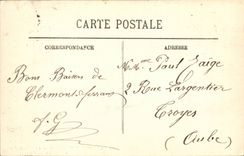 CARTE POSTALE
CORRESPONDANCE
ADRESSE
Bons Baisers de
Clermont-Ferrand
Mme Paul Jaige
2 Rue Largentier
Troyes
(Aube)